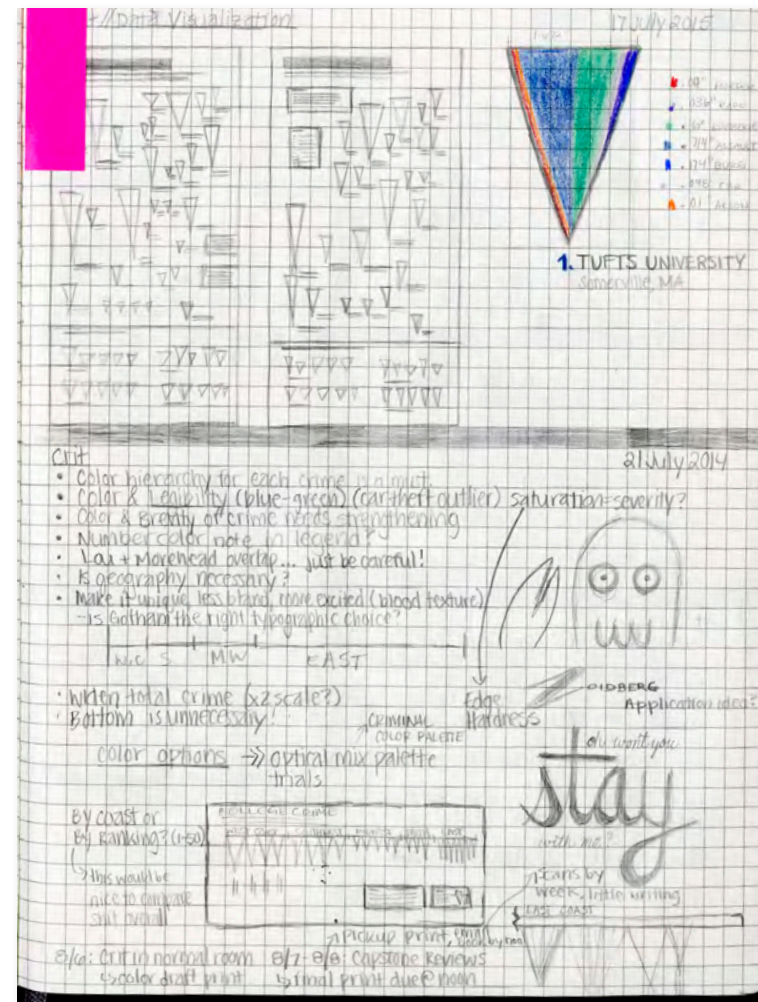 Data Visualization
17 July 2015
1. TUFTS UNIVERSITY
Somerville, MA
Crit
21 July 2014
• Color hierarchy for each crime is a must.
• Color & Legibility (blue-green) (car theft outlier) saturation=severity?
• Color & Brevity of crime needs strengthening
• Number color note in legend?
• Lau + Morehead overlap... just be careful!
• Is geography necessary?
• Make it unique, less bland, more excited (blood texture)
- is Gotham the right typographic choice?
WC S MW EAST
• Widen total crime (x2 scale?)
• Bottom is unnecessary!
Edge
Hardness
OIDBERG
Application idea?
CRIMINAL
COLOR PALETTE
color options → optical mix palette
trials
oh won't you
stay
with me?
By coast or
By Ranking? (1-50)
this would be
nice to compare
overall
COLLEGE CRIME
scans by
week, little writing
EAST COAST
pickup print,
8/6: Crit in normal room
color draft print
8/7-8/8: Capstone Reviews
final print due @ noon